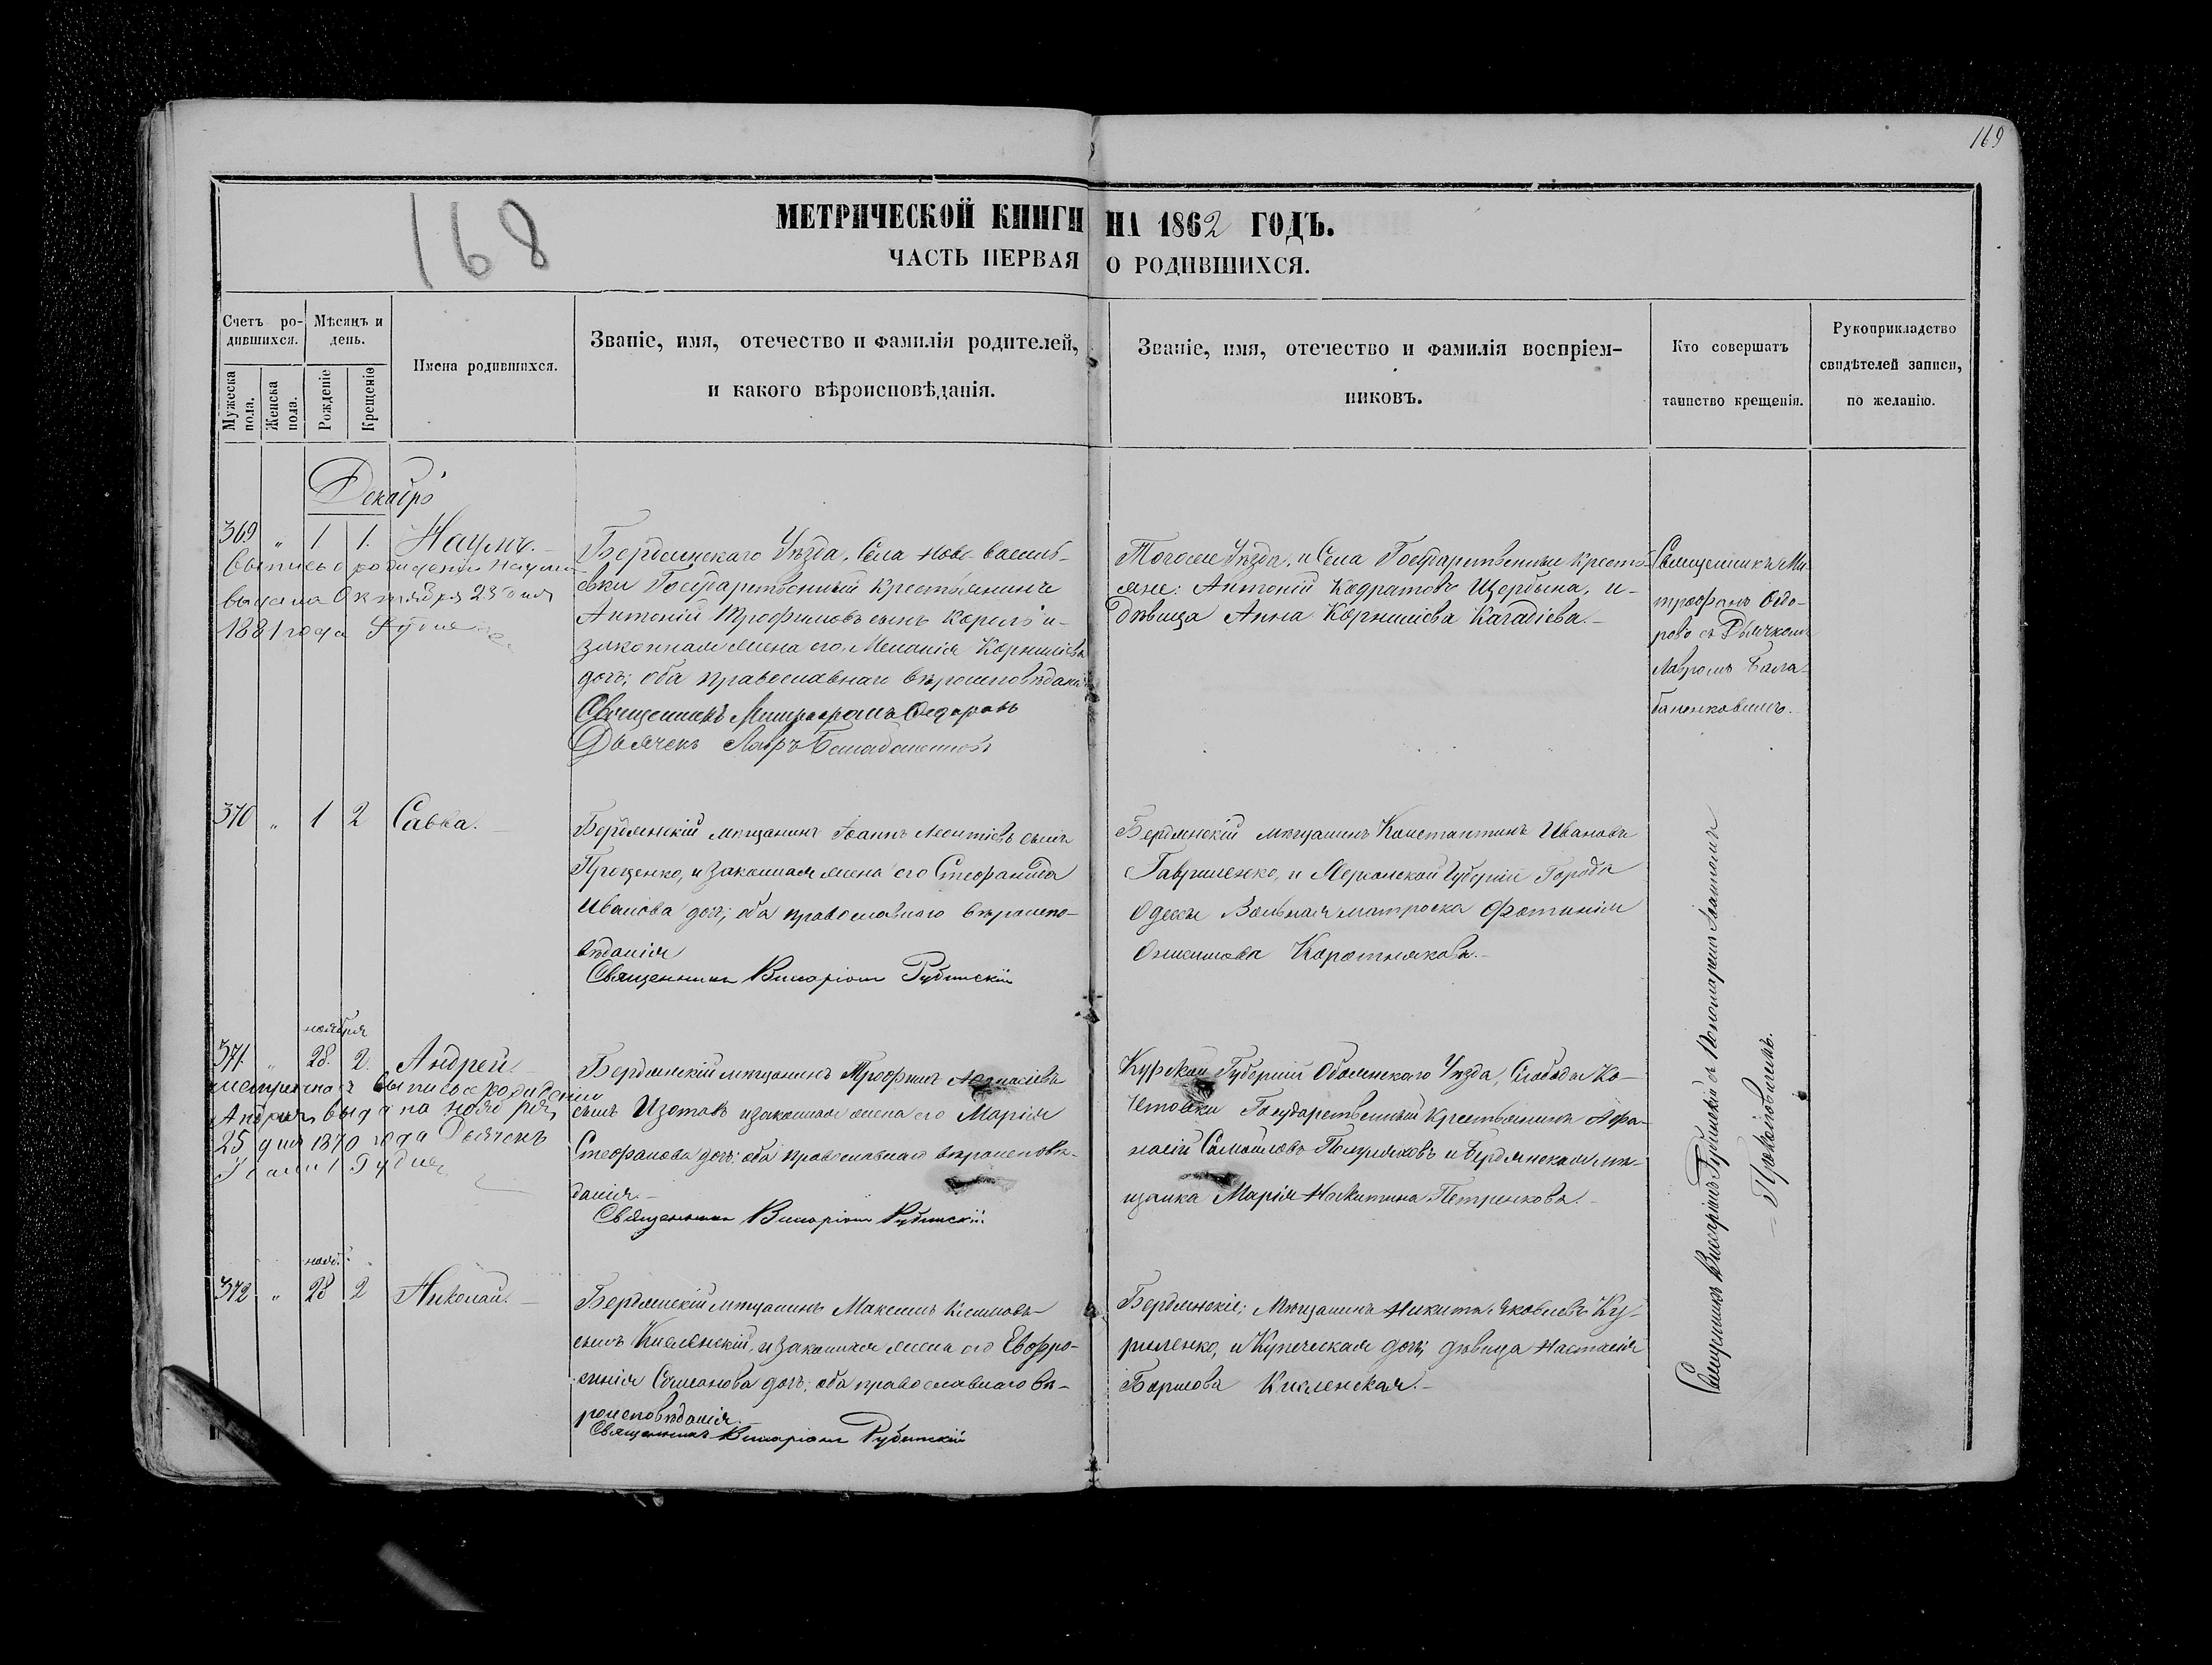 169
168
МЕТРИЧЕСКОЙ КНИГИ НА 1862 ГОДЪ.
ЧАСТЬ ПЕРВАЯ О РОДИВШИХСЯ.
Счетъ ро-
дившихся.
Мужеска
пола.
Женска
пола.
Мѣсяцъ и
день.
Рожденіе
Крещеніе
Имена родившихся.
Званіе, имя, отечество и фамилія родителей,
и какого вѣроисповѣданія.
Званіе, имя, отечество и фамилія воспріем-
никовъ.
Кто совершатъ
таинство крещенія.
Рукоприкладство
свидѣтелей записи,
по желанію.
Декабрь
369 " 1 1. Наумъ.
выпись о рожденіи Наума
выдана Октября 23 дня
1881 года
Бердянскаго Уѣзда, Села Ново-Василь-
евки Государственный Крестьянинъ
Антоній Трофимовъ сынъ и
законная жена его Меланія Корниліева
дочь; оба православнаго вѣроисповѣданія
Священникъ Митрофанъ Федоровъ
Дьячекъ Лавръ Балабаненковъ
Тогоже Уѣзда, и Села Государственные Кресть-
яне: Антоній Кодратовъ Щербина, и
дѣвица Анна Корниліева
Священникъ Ми-
трофанъ Ѳедо-
ровъ съ Дьячкомъ
Лавромъ Бала-
баненковымъ.
370 " 1 2 Савва.
Бердянскій мѣщанинъ Іоаннъ Леонтіевъ сынъ
Проценко, и законная жена его Стефанида
Иванова дочь; оба православнаго вѣроиспо-
вѣданія
Священникъ Виссаріонъ Рубинскій
Бердянскій мѣщанинъ Константинъ Ивановъ
Гавриленко, и Херсонской Губерніи Города
Одессы Вольная матроска Фотинія
Онисимова
ноября
371 " 28. 2. Андрей
метрическая выпись о рожденіи
Андрея выдана ноября
25 дня 1870 года Дьячекъ
Бердянскій мѣщанинъ Трофимъ Аѳанасіевъ
сынъ Изотовъ и законная жена его Марія
Стефанова дочь; оба православнаго вѣроисповѣ-
данія.
Священникъ Виссаріонъ Рубинскій
Курской Губерніи Обоянскаго Уѣзда, Слободы Ко-
четовки Государственный Крестьянинъ Афа-
насій Самойловъ и Бердянская мѣ-
щанка Марія Никитина Петренкова.
нояб.
372 " 28 2 Николай.
Бердянскій мѣщанинъ Максимъ Климовъ
сынъ Кисленскій, и законная жена его Евфро-
синія дочь; оба православнаго вѣ-
роисповѣданія.
Священникъ Виссаріонъ Рубинскій
Бердянскіе: Мѣщанинъ Никита Яковлевъ Ку-
риленко, и Купеческая дочь дѣвица Настасія
Борисова Кисленская.
Священникъ Виссаріонъ Рубинскій съ Пономаремъ Іоанномъ
Прокоповичемъ.